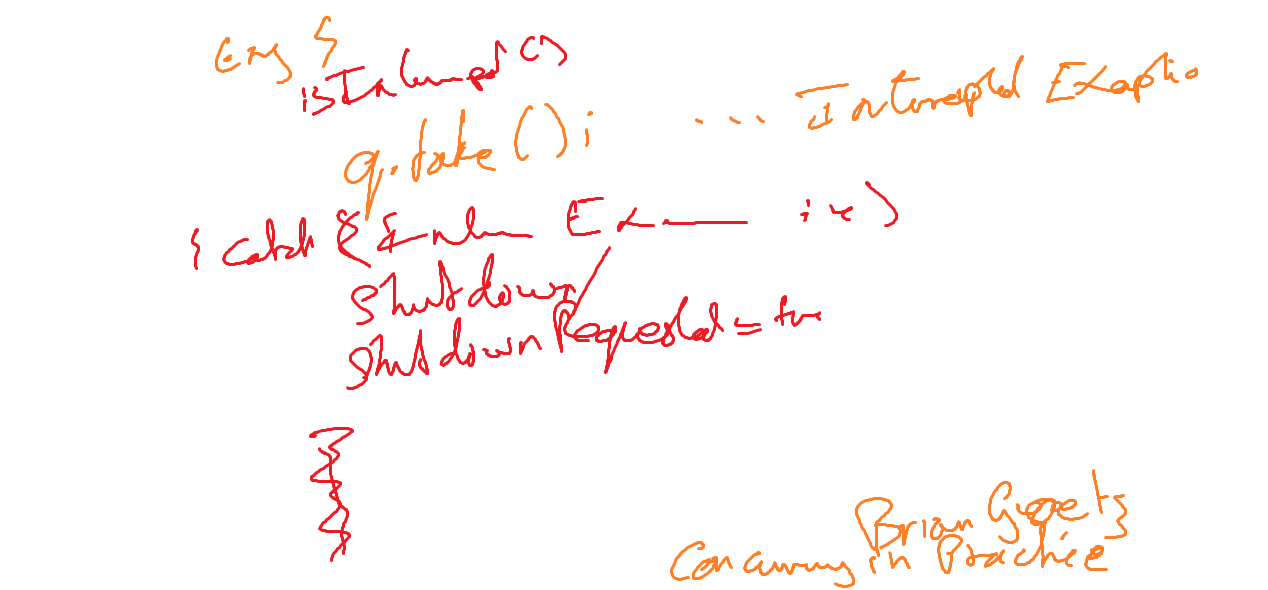 try {
isInterrupted()
q.take(); ... Interrupted Exceptio
} catch (Inter Ex ie)
shutdown
shutdownRequested = true
Brian Goetz
Concurrency in Practice